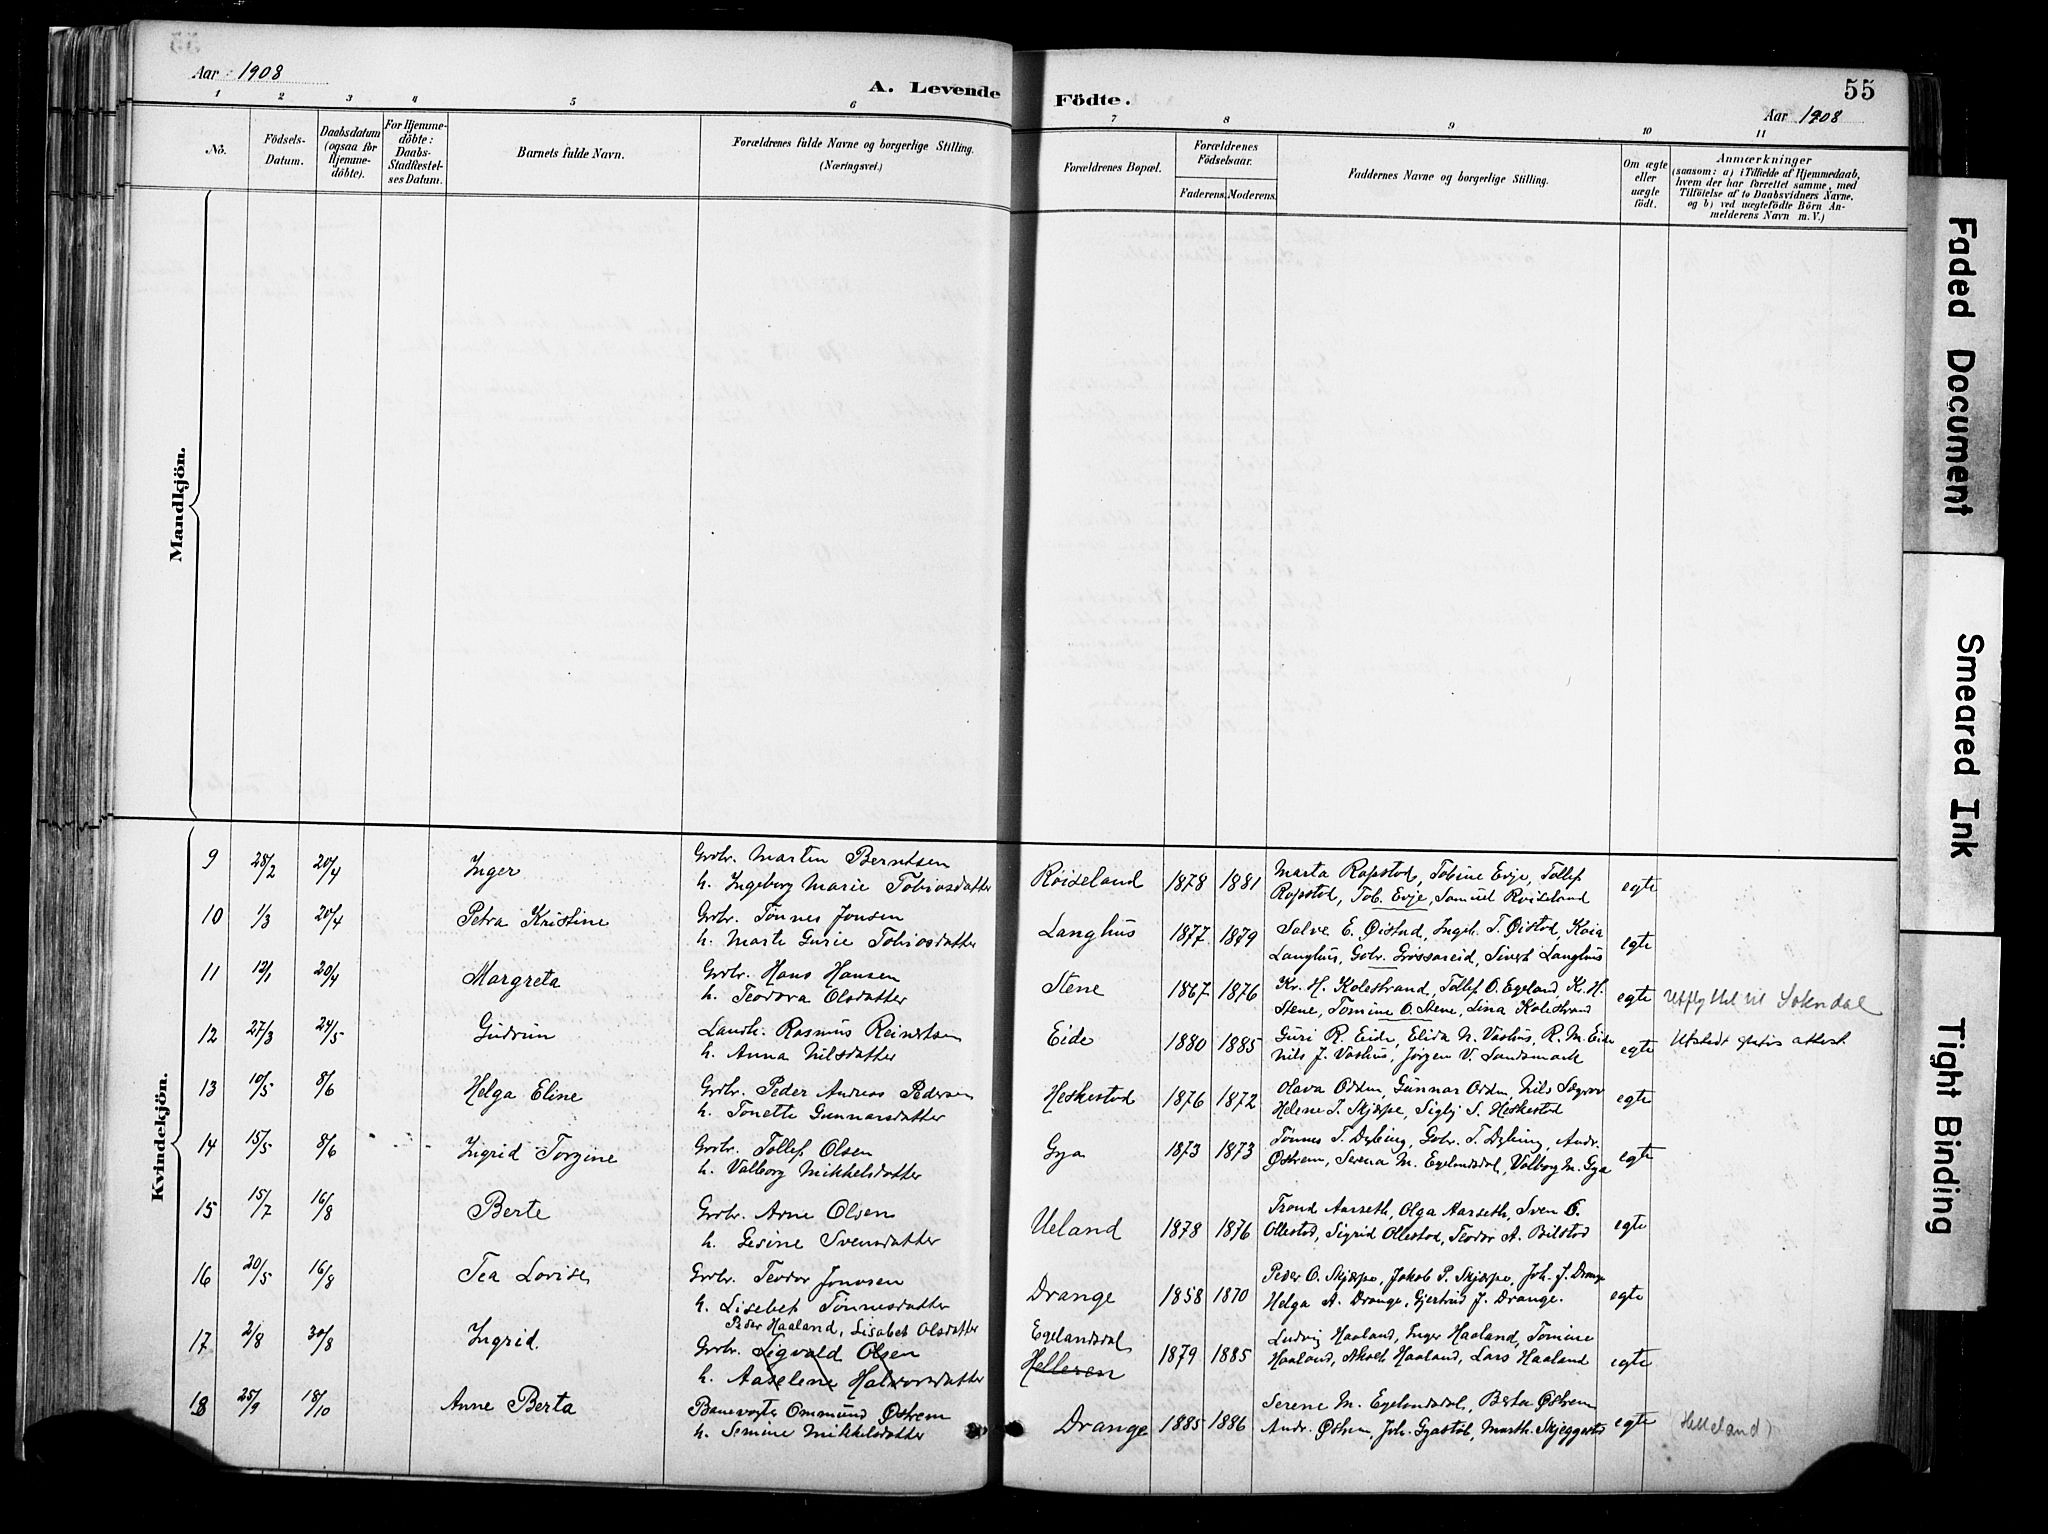 55
Aar 1908
A. Levende Födte.
Aar 1908
1 2 3 4 5 6 7 8 9 10 11
No.
Födsels-
Datum.
Daabsdatum
(ogsaa for
Hjemme-
döbte).
For Hjemme-
döbte:
Daabs-
Stadfæstel-
ses Datum.
Barnets fulde Navn.
Forældrenes fulde Navne og borgerlige Stilling.
(Næringsvei.)
Forældrenes Bopæl.
Forældrenes
Födselsaar.
Faderens. Moderens.
Faddernes Navne og borgerlige Stilling.
Om ægte
eller
uægte
födt.
Anmærkninger
(saasom: a) i Tilfælde af Hjemmedaab,
hvem der har forrettet samme, med
Tilföielse af to Daabsvidners Navne,
og b) ved uægtefödte Börn An-
melderens Navn m. V.)
Mandkjön.
Kvindekjön.
9 28/2 20/4 Inger Grbr. Martin Berntsen
h. Ingeborg Marie Tobiasdatter
Röiseland 1878 1881 Marta Rapstad, Tobine Evje, Tollef
Rapstad, Tob. Evje, Samuel Röiseland egte
10 1/3 20/4 Petra Kristine Grbr. Tönnes Jonsen
h. Marte Gurie Tobiasdatter
Langhus 1877 1879 Salve E. Øistad, Ingeb. T. Øistad, Kaia
Langhus, Gabr. Grössareid, Sivert Langhus egte
11 12/1 20/4 Margreta Grbr. Hans Hansen
h. Teodora Olsdatter
Stene 1867 1876 Kr. H. Kolestrand, Tollef O. Egeland, Kr. H.
Stene, Tomine O. Stene, Lina Kolestrand egte Utflyttet til Sokndal
12 27/3 24/5 Gudrun Landh. Rasmus Reinertsen
h. Anna Nilsdatter
Eide 1880 1885 Guri R. Eide, Elida N. Vashus, R. M. Eide
Nils J. Vashus, Jörgen V. Landsmark egte Utstedt gratis attest
13 10/5 8/6 Helga Eline Grbr. Peder Andreas Pedersen
h. Tonette Gunnarsdatter
Heskestad 1876 1872 Olava Odden, Gunnar Odden, Nils Sægrov
Helene T. Skjæpe, Sigbj. S. Heskestad egte
14 15/5 8/6 Ingrid Torgine Grbr. Tollef Olsen
h. Valborg Mikkelsdatter
Gya 1873 1873 Tönnes T. Dybing, Gabr. T. Dybing, Andr.
Østrem, Serena M. Egelandsdal, Valborg M. Gya egte
15 15/7 16/8 Berte Grbr. Arne Olsen
h. Gesine Svensdatter
Ueland 1878 1876 Trond Aarseth, Olga Aarseth, Sven O.
Ollestad, Sigrid Ollestad, Teodor A. Bilstad egte
16 20/5 16/8 Tea Lovise Grbr. Teodor Jonasen
h. Lisebet Tönnesdatter
Drange 1858 1870 Peder O. Skjæpe, Jakob P. Skjæpe, Joh. J. Drange
Helga A. Drange, Gjertrud J. Drange. egte
17 2/8 30/8 Ingrid. Peder Haaland, Lisabet Olsdatter
Grbr. Sigvald Olsen
h. Aaselene Halvorsdatter
Egelandsdal
Helleren 1879 1885 Ludvig Haaland, Inger Haaland, Tomine
Haaland, Haaland, Lars Haaland egte
18 25/9 18/10 Anne Berta Banevogter Ommund Østrem
h. Semine Mikkelsdatter
Drange 1885 1886 Serene M. Egelandsdal, Berta Østrem
Andr. Østrem, Joh. Gyastöl, Marth. Skjeggestad egte (Helleland)
Faded Document
Smeared Ink
Tight Binding